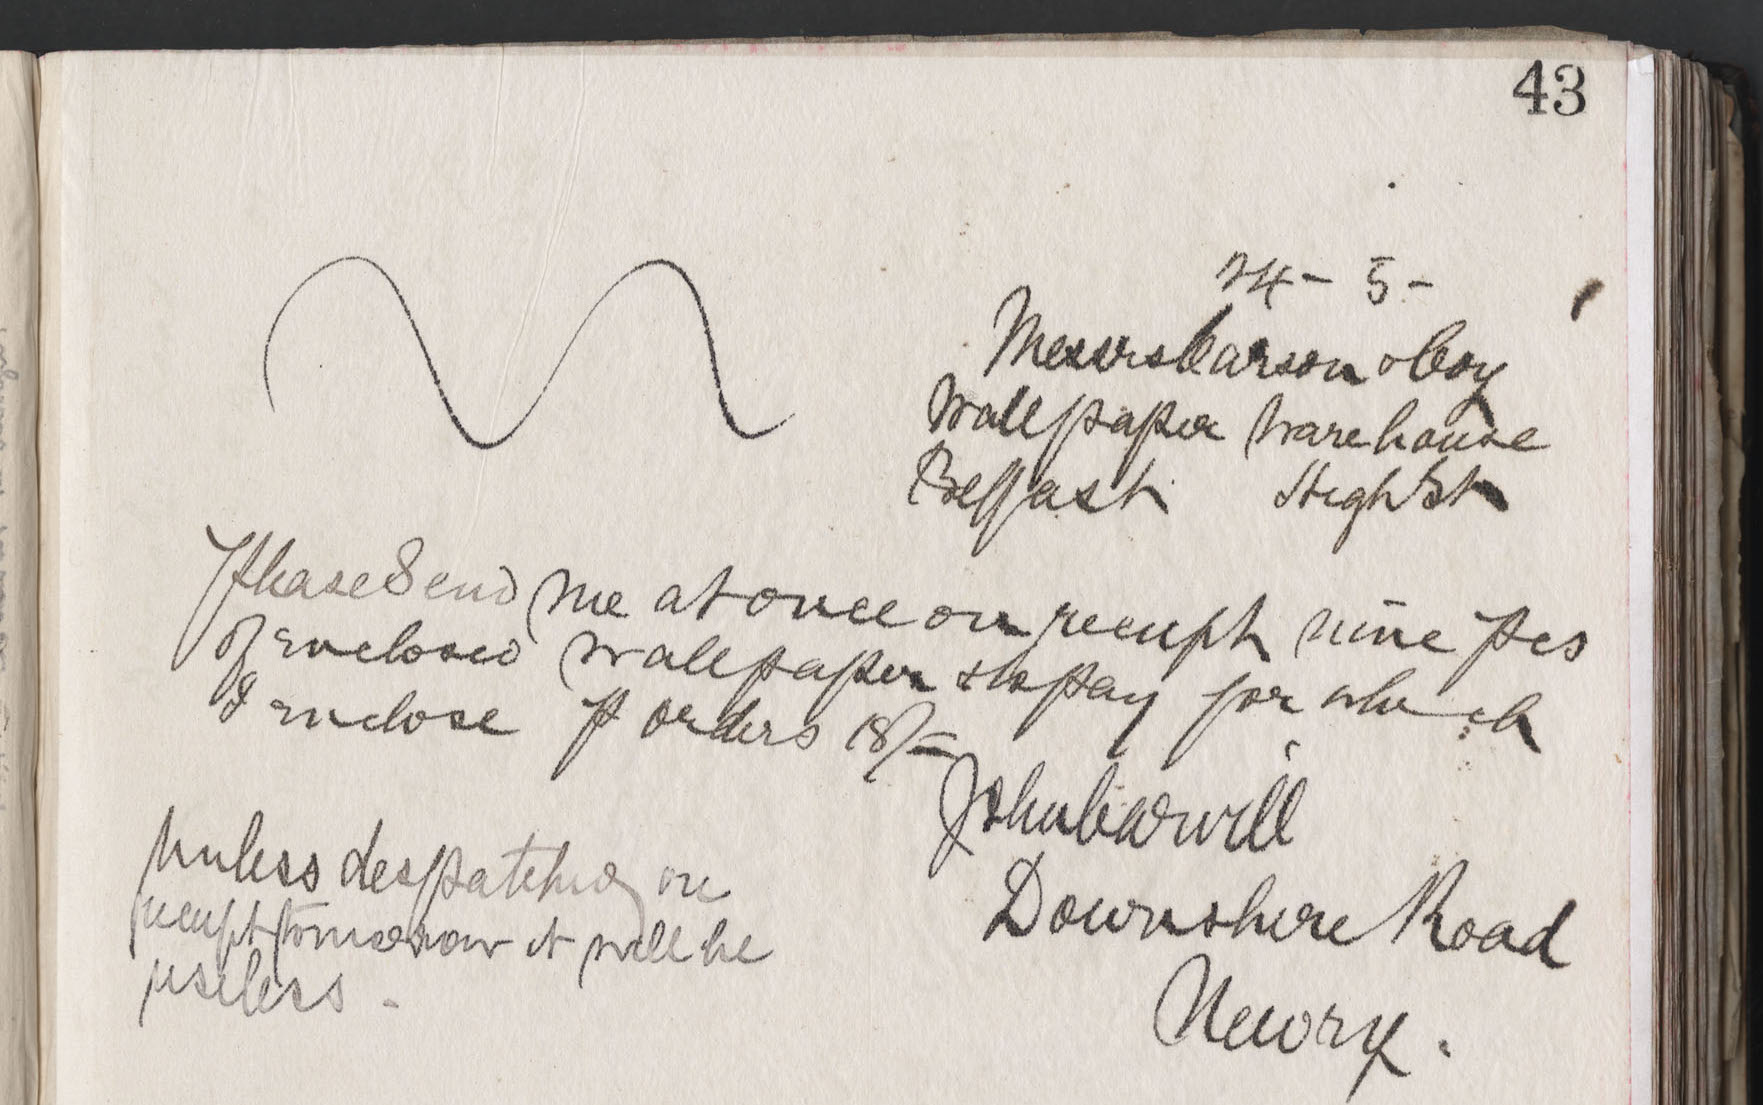 43
24 - 5 -
Messrs Carson & Coy
Wallpaper Warehouse
Belfast High St
Please Send me at once on receipt nine pcs
of enclosed wallpaper & to pay for which
I enclose P orders 18/-
John Carvill
Downshire Road
Newry.
Unless despatched on
receipt tomorrow it will be
useless -